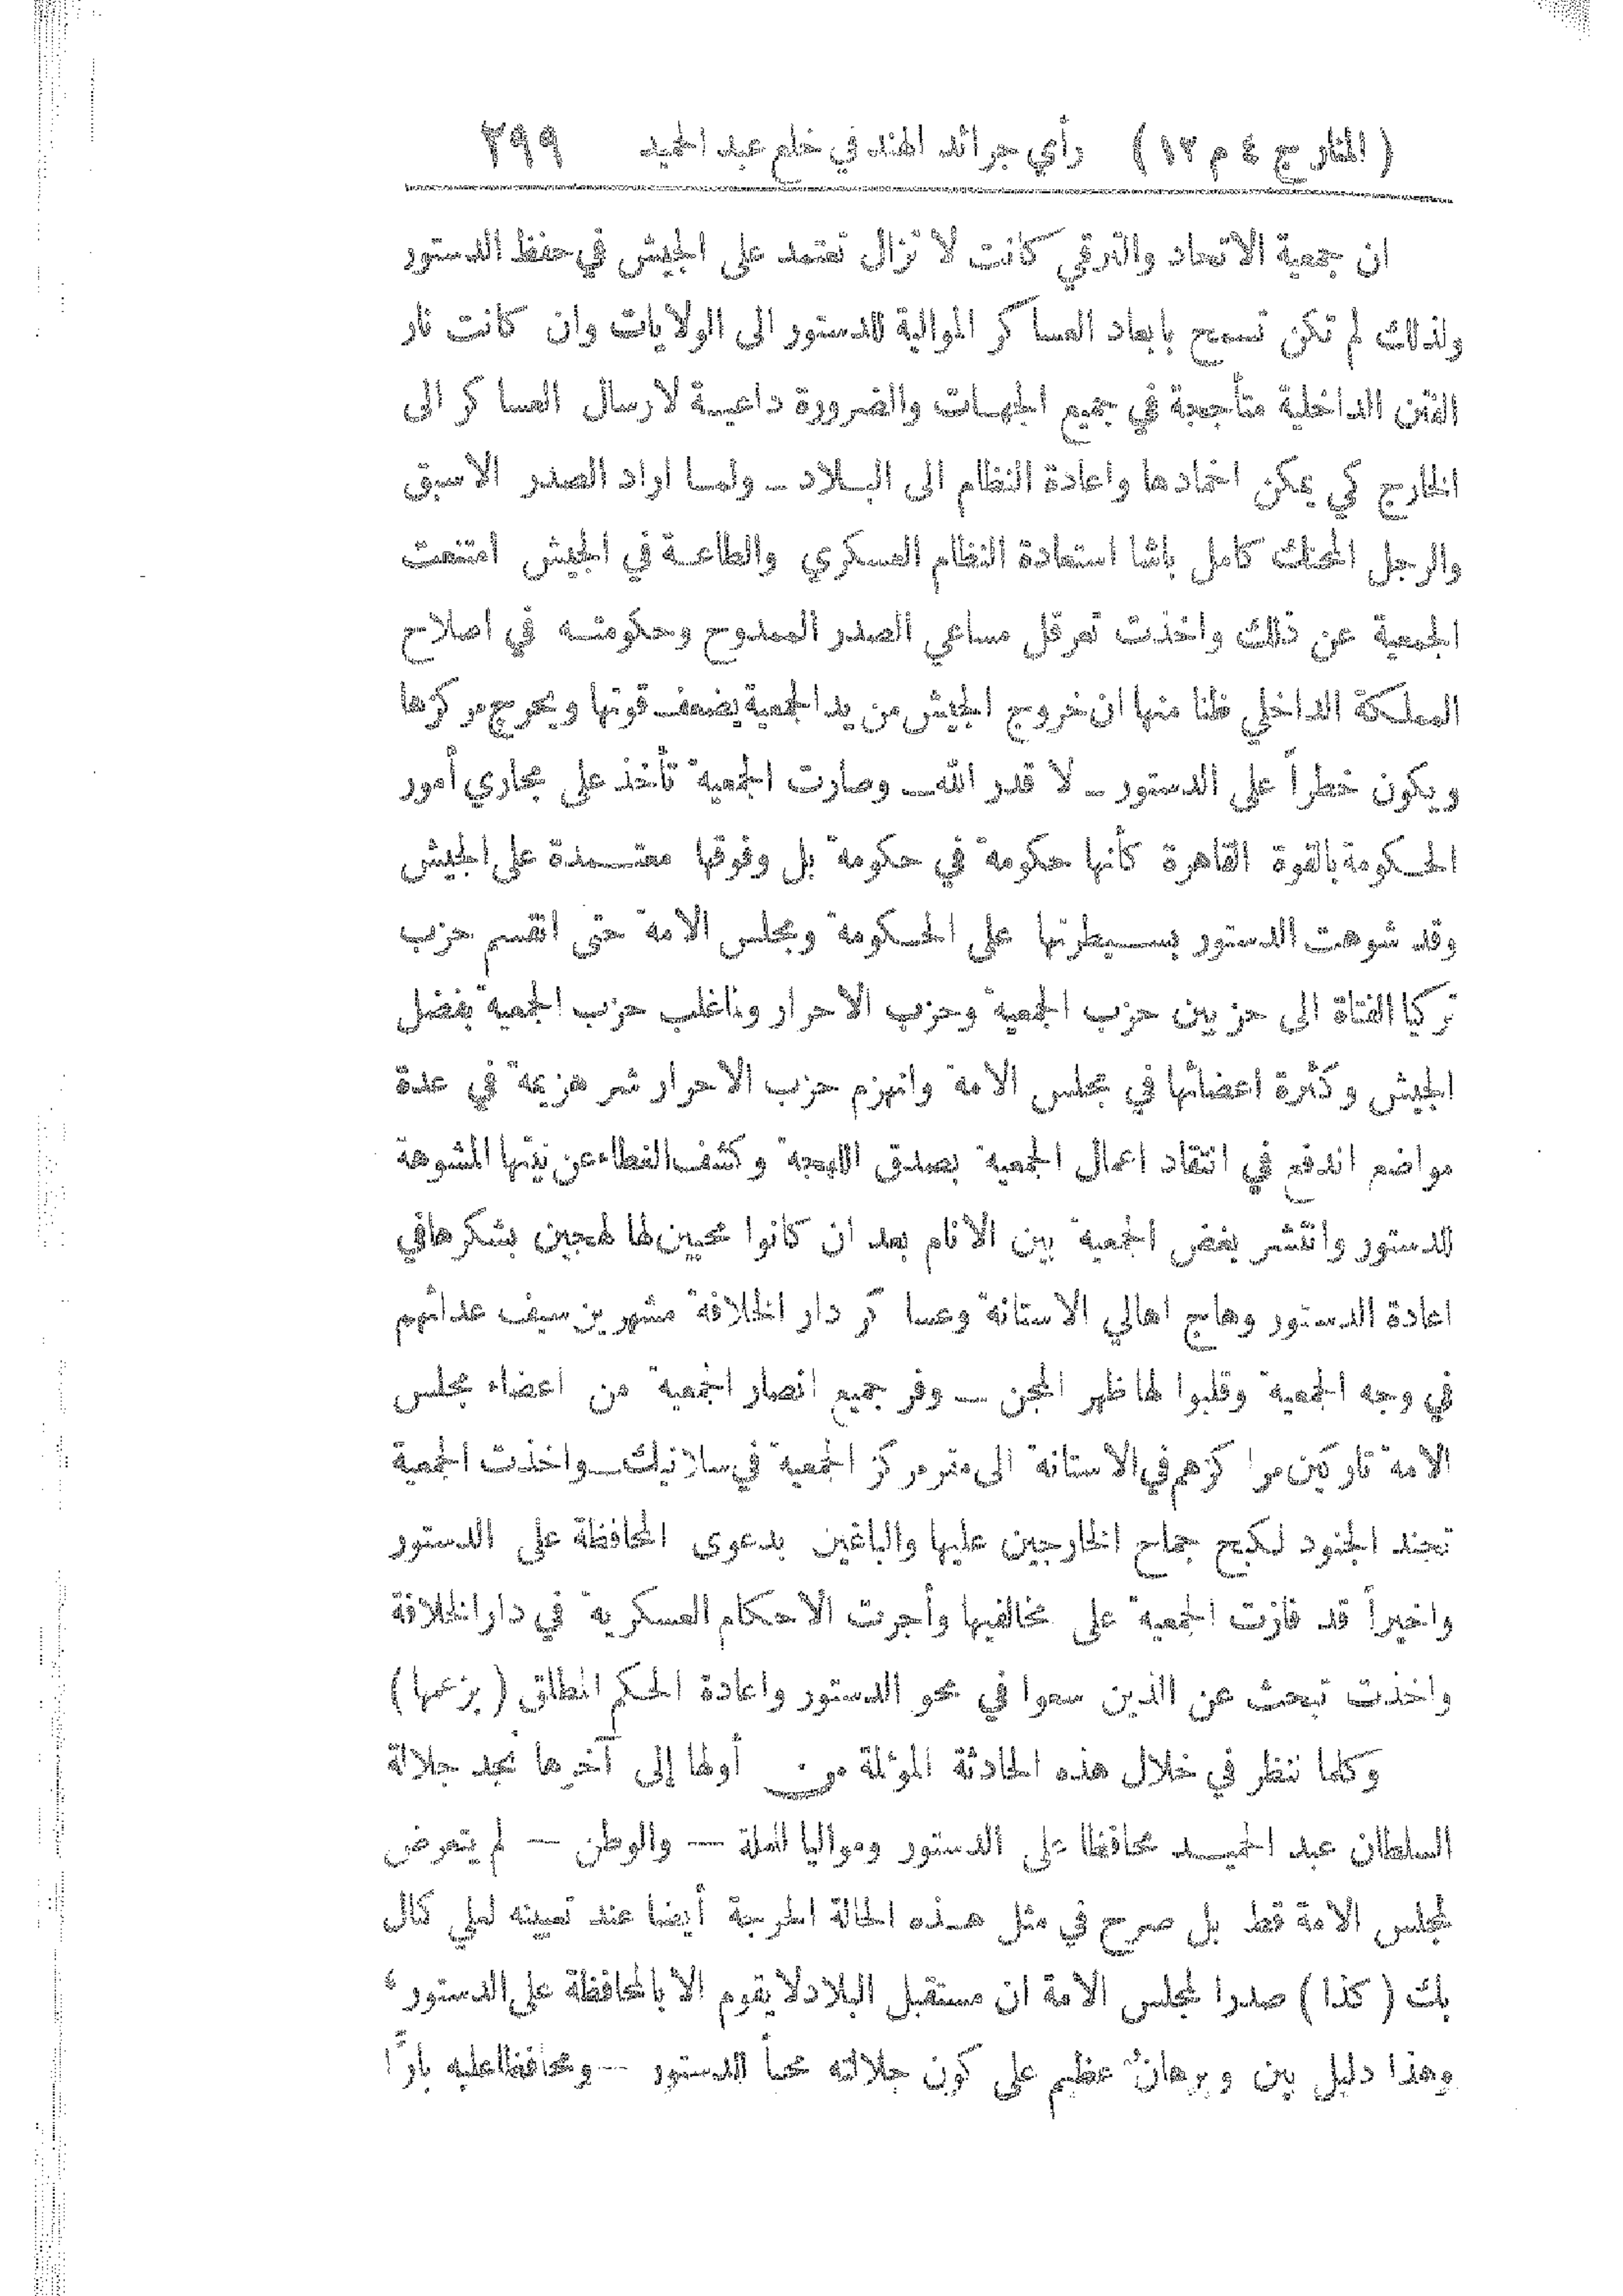 ( المنار ج ٤ م ١٢ ) رأي جرائد الهند في خلع عبد الحميد ٢٩٩
ان جمعية الاتحاد والترقي كانت لا تزال تعتمد على الجيش في حفظ الدستور
ولذلك لم تكن تسمح بابعاد العساكر الموالية للدستور الى الولايات وان كانت نار
الفتن الداخلية متأججة في جميع الجهات والضرورة داعية لارسال العساكر الى
الخارج كي يمكن اخمادها واعادة النظام الى البلاد ـ ولما اراد الصدر الاسبق
والرجل المحنك كامل باشا استعادة النظام العسكري والطاعة في الجيش امتنعت
الجمعية عن ذلك واخذت تعرقل مساعي الصدر الممدوح وحكومته في اصلاح
المملكة الداخلي ظنا منها ان خروج الجيش من يد الجمعية يضعف قوتها ويحرج مركزها
ويكون خطراً على الدستور ـ لا قدر الله ـ وصارت الجمعية تأخذ على مجاري أمور
الحكومة بالقوة القاهرة كأنها حكومة في حكومة بل وفوقها معتمدة على الجيش
وقد شوهت الدستور بسيطرتها على الحكومة ومجلس الامة حتى انقسم حزب
تركيا الفتاة الى حزبين حزب الجمعية وحزب الاحرار وناغلب حزب الجمعية بفضل
الجيش وكثرة اعضائها في مجلس الامة وانهزم حزب الاحرار شر هزيمة في عدة
مواضع اندفع في انتقاد اعمال الجمعية بصدق اللهجة وكشف الغطاء عن نيتها المشوهة
للدستور وانتشر بغض الجمعية بين الانام بعد ان كانوا محبين لها لهجين بشكرها في
اعادة الدستور وهاج اهالي الاستانة وعساكر دار الخلافة مشهرين سيف عدائهم
في وجه الجمعية وقلبوا لها ظهر المجن ـ وفر جميع انصار الجمعية من اعضاء مجلس
الامة تاركين مراكزهم في الاستانة الى مقر مركز الجمعية في سلانيك ـ واخذت الجمعية
تجند الجنود لكبح جماح الخارجين عليها والباغين بدعوى المحافظة على الدستور
واخيراً قد فازت الجمعية على مخالفيها وأجرت الاحكام العسكرية في دار الخلافة
واخذت تبحث عن الذين سعوا في محو الدستور واعادة الحكم المطلق ( بزعمها )
وكلما ننظر في خلال هذه الحادثة المؤلمة من أولها إلى آخرها نجد جلالة
السلطان عبد الحميد محافظا على الدستور ومواليا للملة — والوطن — لم يتعرض
لمجلس الامة قط بل صرح في مثل هذه الحالة الحرجة أيضا عند تعيينه لعلي كمال
بك ( كذا ) صدرا لمجلس الامة ان مستقبل البلاد لا يقوم الا بالمحافظة على الدستور ،
وهذا دليل بين وبرهان عظيم على كون جلالته محباً للدستور — ومحافظا عليه بارًا